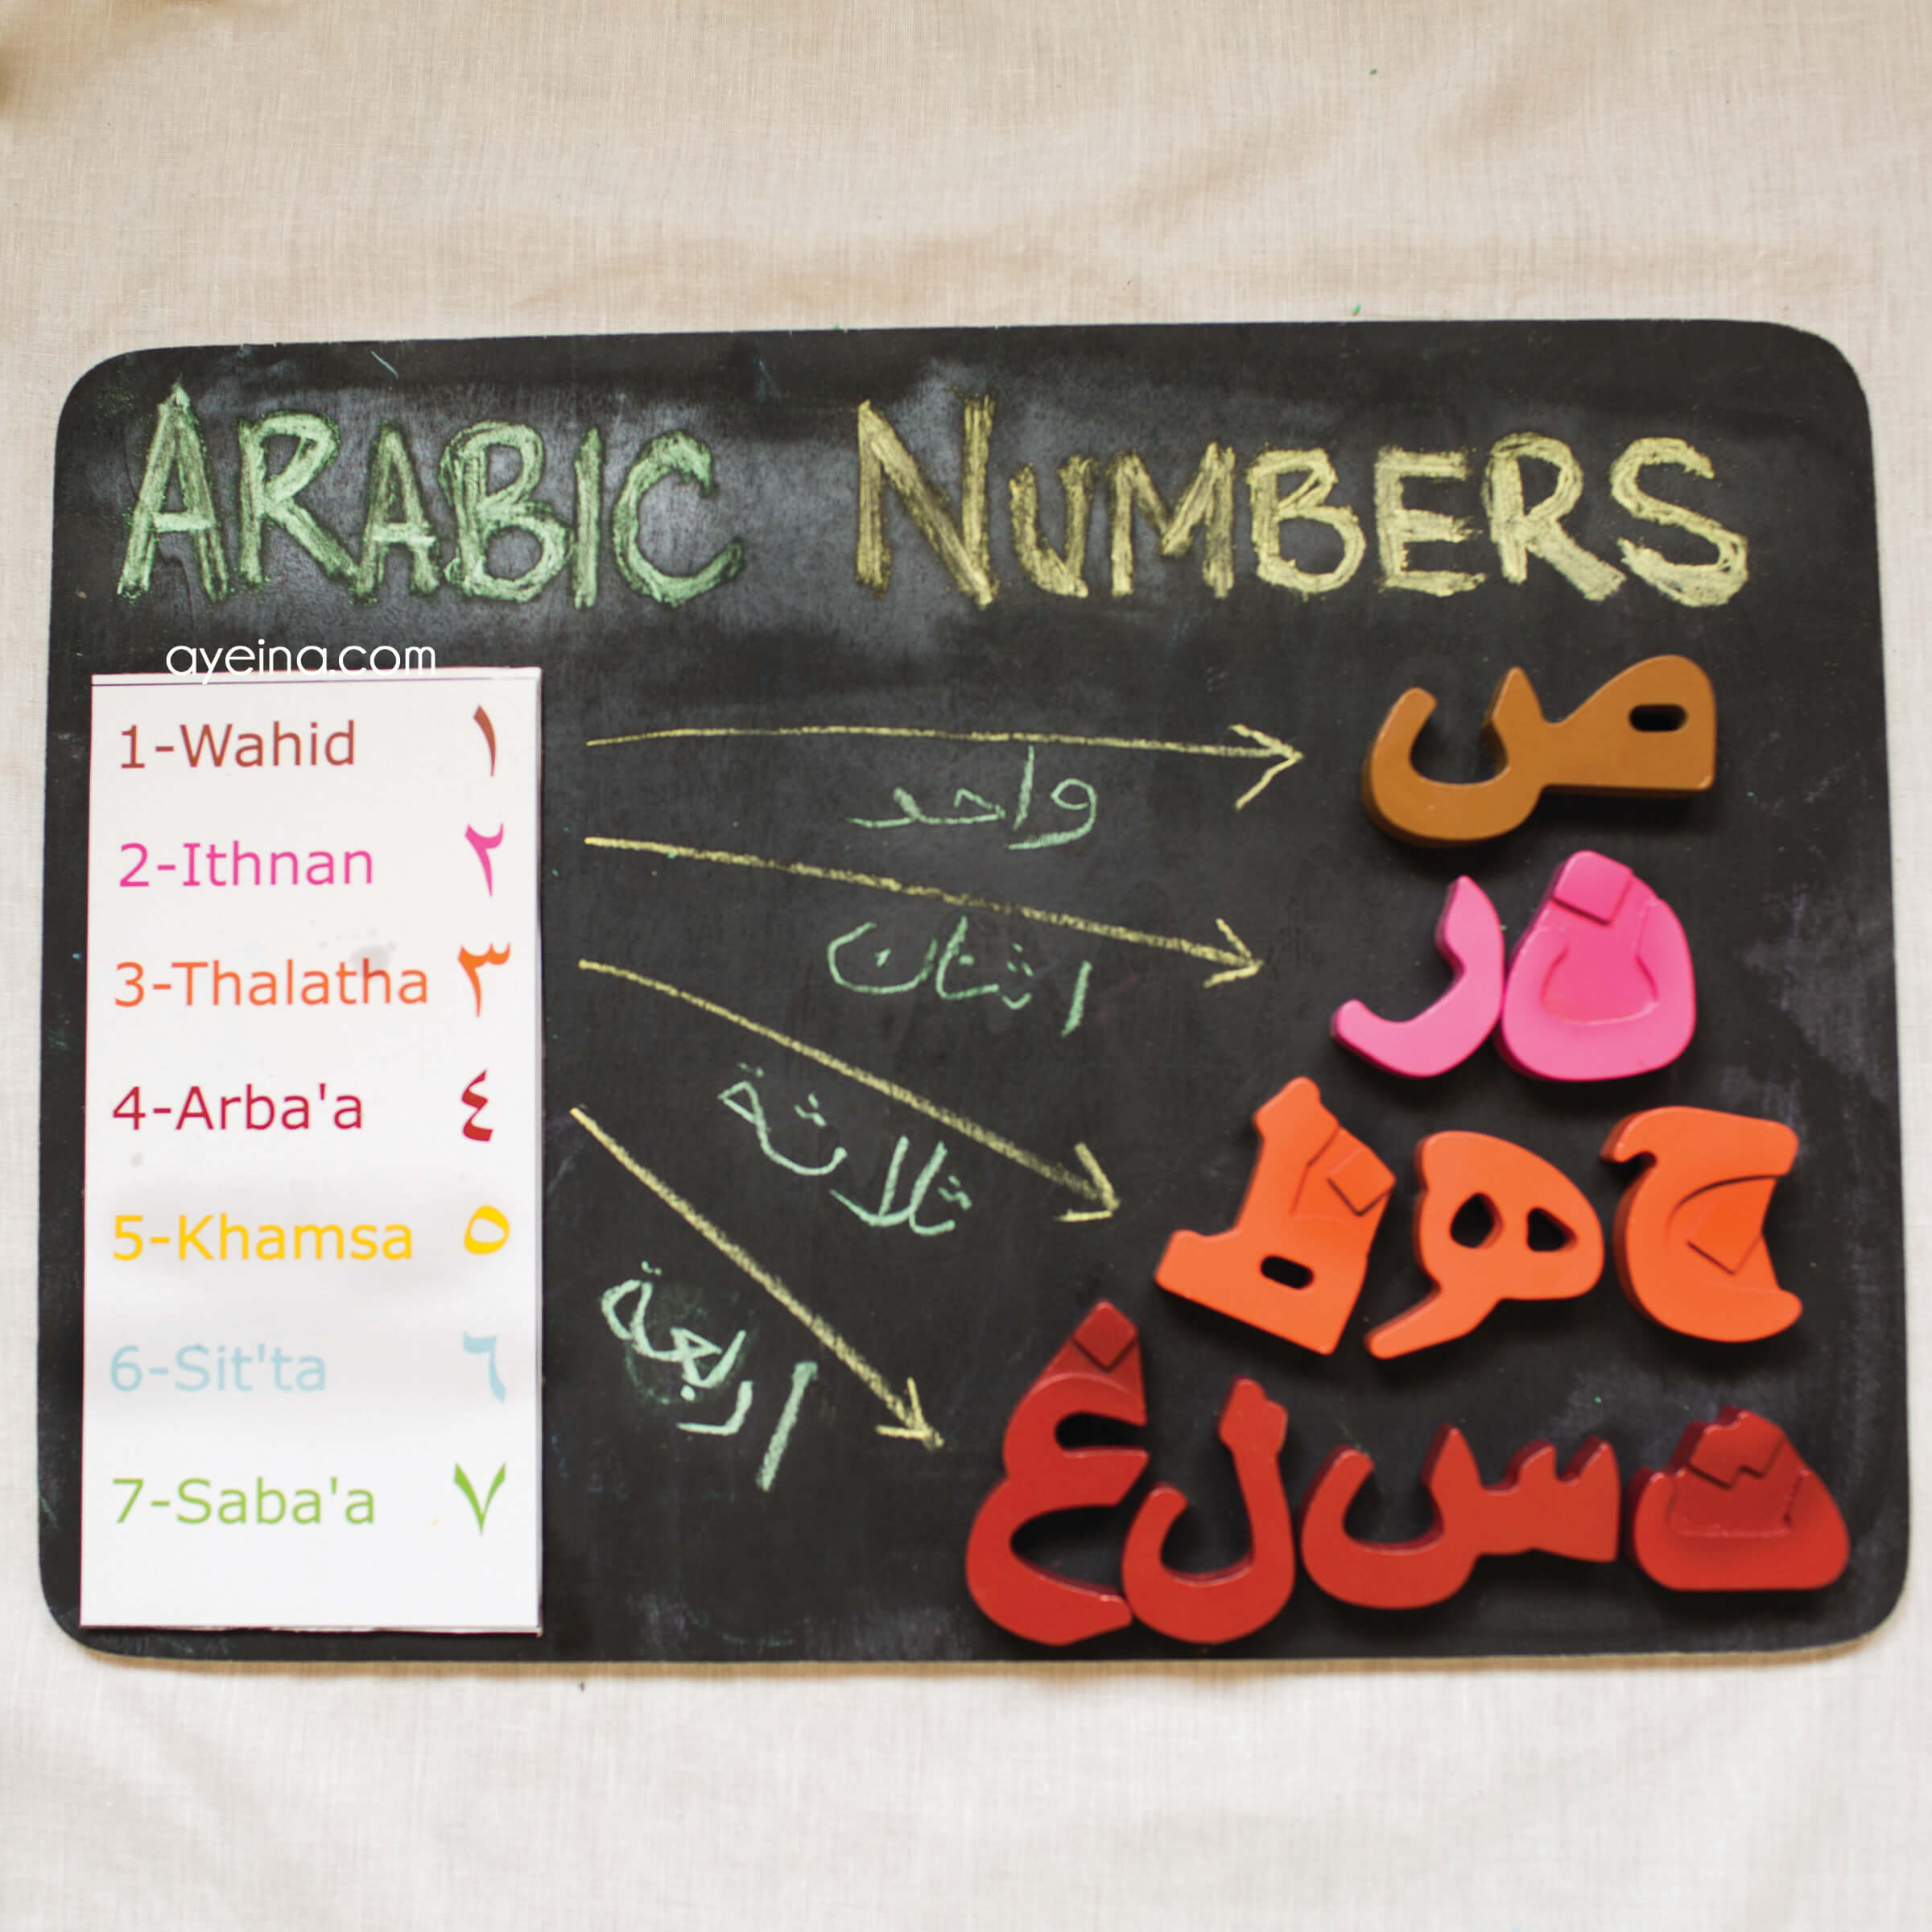 ARABIC NUMBERS
ayeina.com
1-Wahid ١
2-Ithnan ٢
3-Thalatha ٣
4-Arba'a ٤
5-Khamsa ٥
6-Sit'ta ٦
7-Saba'a ٧
واحد
اثنان
ثلاثة
اربعة
ص
ن ر
ج ه ظ
ث س ل غ